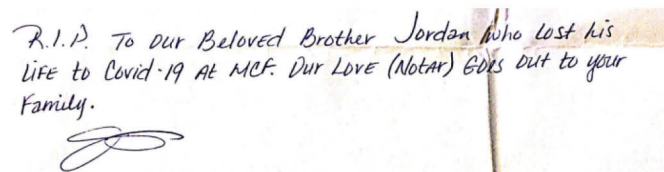 R.I.P. To our Beloved Brother Jordan who Lost his
Life to Covid-19 At MCF. Our Love (Notar) Goes out to your
Family.